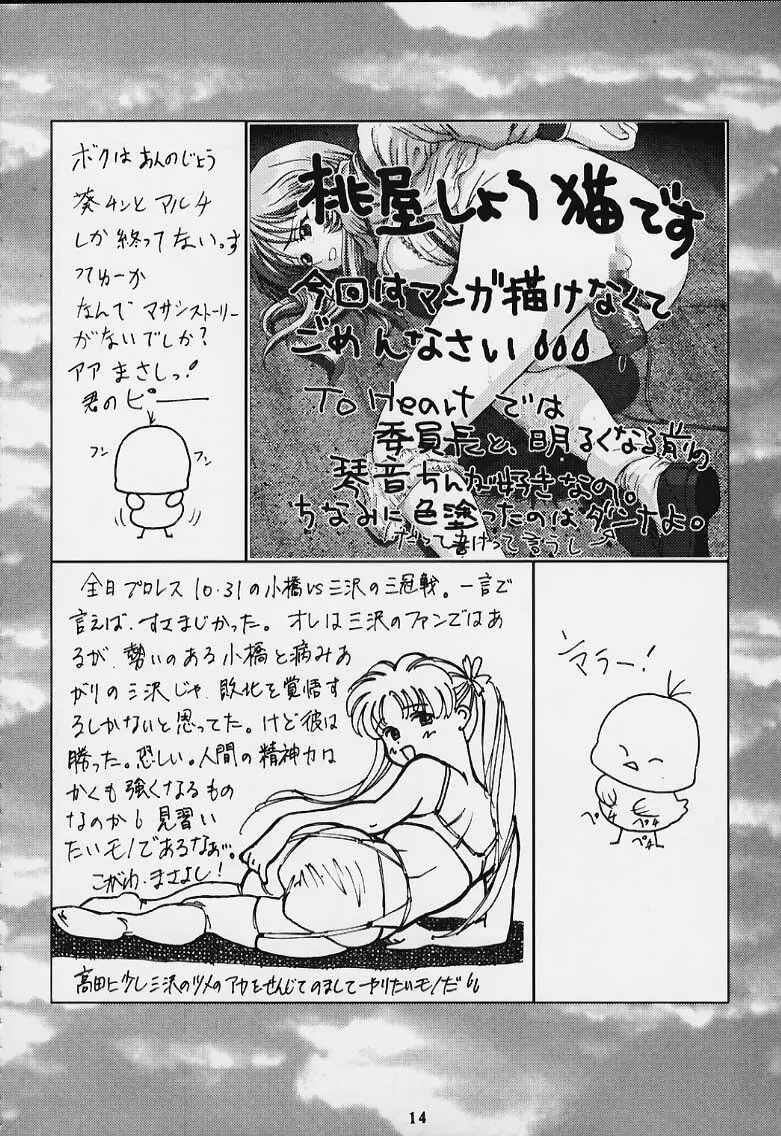 ボクは あんのじょう
葵チンとマルチ
しか終ってない。す
つてゅーか
なんで マサシストーリー
がないでしか?
アア まさしっ!
君のピ――
フン
フン
桃屋しょう猫です
今回はマンガ描けなくて
ごめんなさい
To Heartでは
委員長と、明るくなる前の
琴音ちんが好きなの。
ちなみに色塗ったのはダンナよ。
だって書けって言うし
全日プロレス 10.31の小橋vs三沢の三冠戦。一言で
言えば、すさまじかった。オレは三沢のファンではあ
るが、勢いのある小橋と病みあ
がりの三沢じゃ、敗北を覚悟す
るしかないと思ってた。けど彼は
勝った。恐しい。人間の精神力は
かくも強くなるもの
なのか 見習い
たいモノであるなぁ…。
こがわ、まさよし!
高田に少し三沢のツメのアカをせんじてのましてやりたいモノだ
マラー!
ペチ
ペチ
ペチ
14